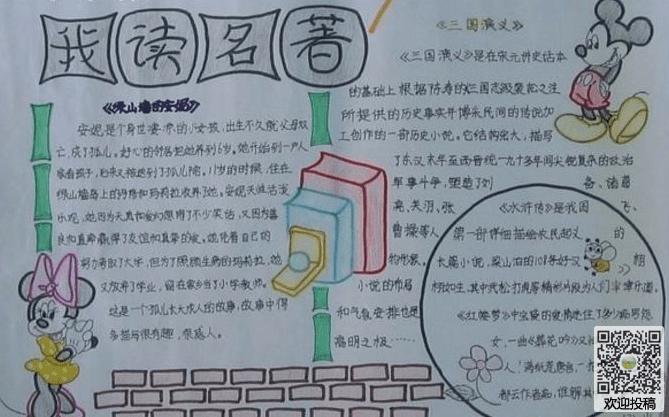 我读名著
《绿山墙的安妮》
安妮是个身世凄凉的小女孩，出生不久就父母双
亡，成了孤儿。好心的邻居把她养到6岁。她开始到一户人
家看孩子，后来又被送到了孤儿院。11岁的时候，住在
绿山墙房上的马修和玛莉拉收养了她。安妮天性活泼
乐观，她因为天真和爱幻想闹了不少笑话，又因为善
良和直率赢得了友谊和真挚的爱。她凭着自己的
努力考取了大学，但为了照顾生病的玛莉拉，她
又放弃了学业，留在家乡当了小学教师。
这是一个孤儿长大成人的故事，故事中得
多描写很有趣，很感人。
《三国演义》
《三国演义》是在宋元讲史话本
的基础上根据陈寿的《三国志》及裴松之注
所提供的历史事实并博采民间的传说加
工创作的一部历史小说。它结构宏大，描写
了东汉末年至西晋统一九十多年间尖锐复杂的政治
军事斗争，塑造了刘备、诸葛
亮、关羽、张飞、
曹操等人
物形象。
小说的布局
和气氛安排也是
高明之极……
《水浒传》是我国
第一部详细描绘农民起义的
长篇小说，梁山泊的108条好汉栩
栩如生，其中武松打虎等精彩片段为人们津津乐道。
《红楼梦》中宝黛的爱情迷住了多少痴男怨
女，一曲《葬花吟》又
人！满纸荒唐言，
都云作者痴，谁解其
欢迎投稿